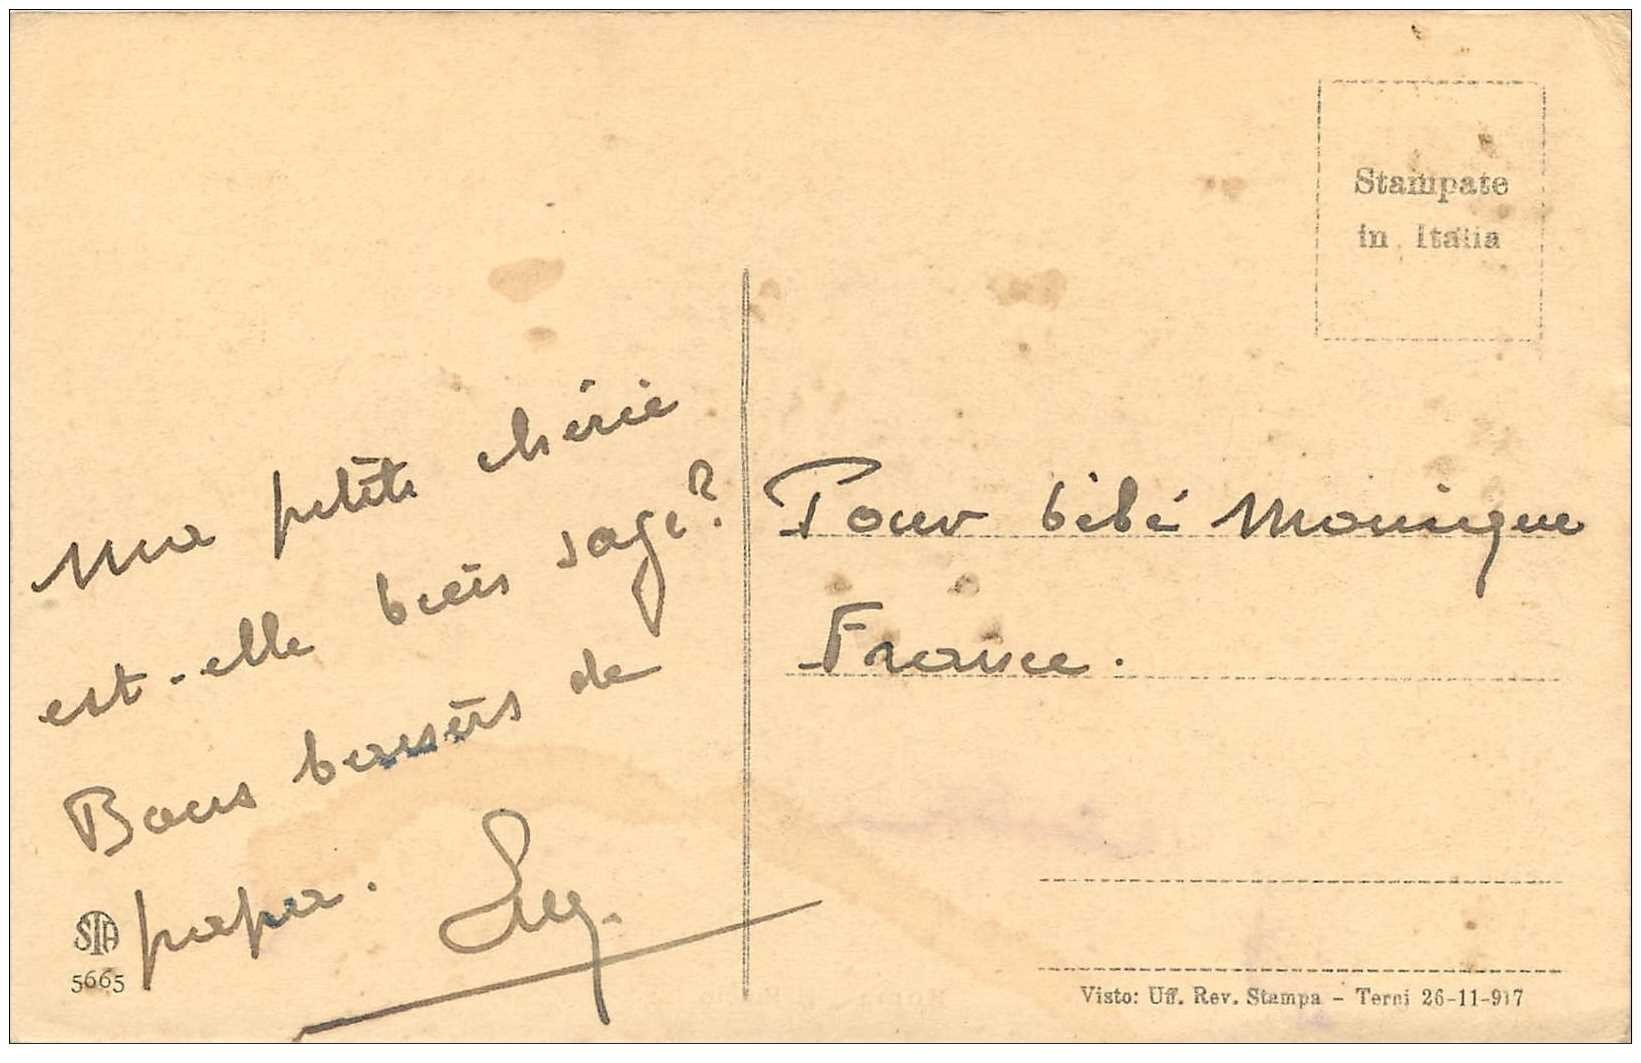 Stampate
in Italia
Ma petite chérie
est-elle bien sage?
Bons baisers de
papa.
STA
5665
Pour bébé Monique
France.
Visto: Uff. Rev. Stampa - Terni 26-11-917